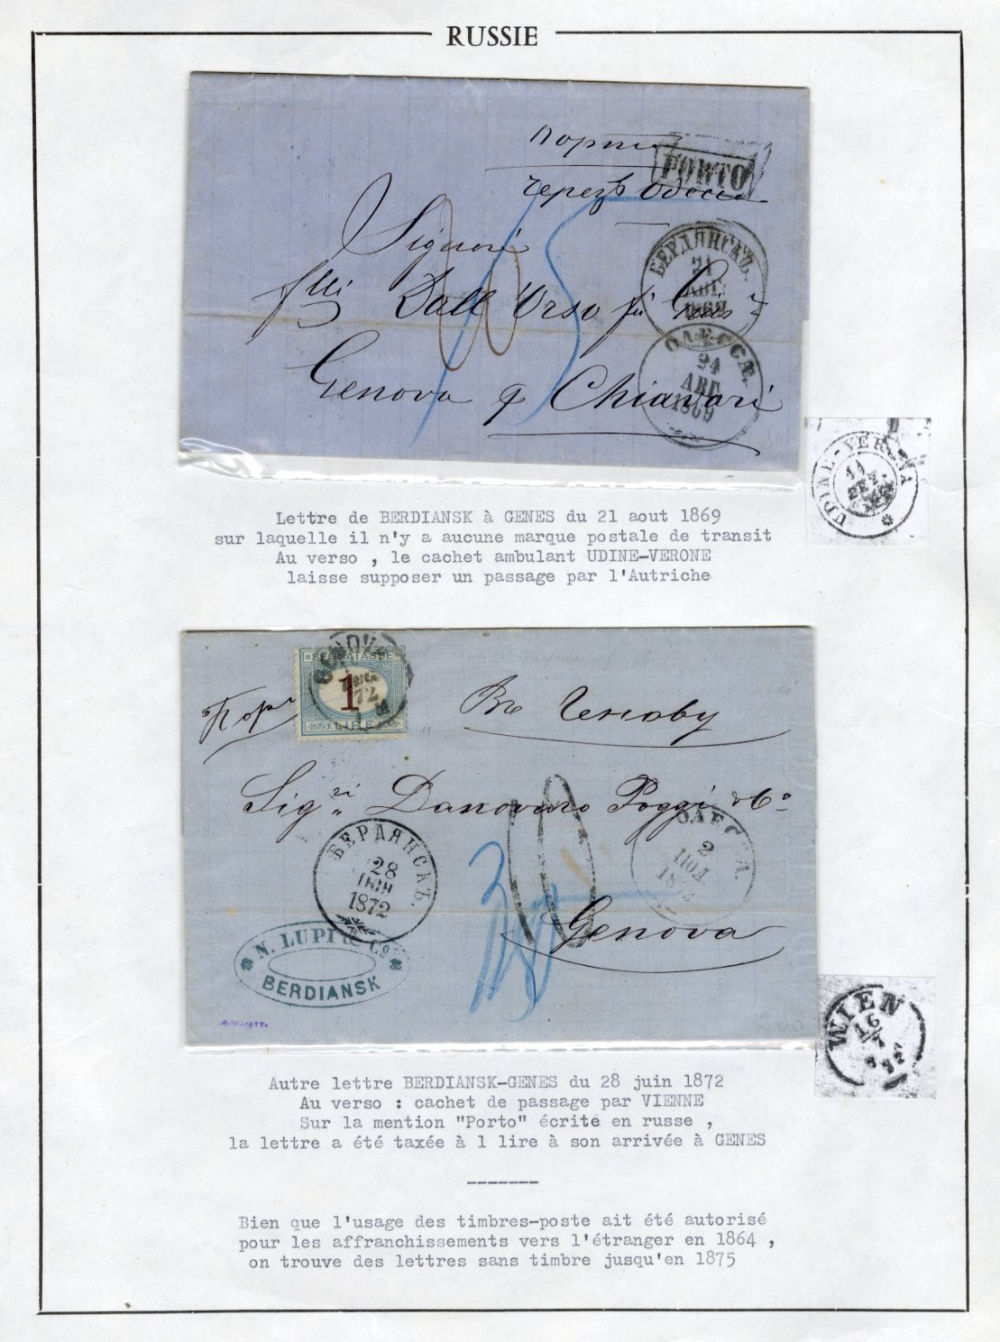 RUSSIE
порто
PORTO
черезъ Одесса
Signori
БЕРДЯНСКЪ.
21
АВГ.
1869
flli Dall'Orso fu
ОДЕССА.
24
АВГ.
1869
Genova p Chiavari
UDINE-VERONA
11
SET.
Lettre de BERDIANSK à GENES du 21 aout 1869
sur laquelle il n'y a aucune marque postale de transit
Au verso , le cachet ambulant UDINE-VERONE
laisse supposer un passage par l'Autriche
GENOVA
72
SEGNATASSE
1
LIRE
Порто
Въ Геновy
Sigri Danovaro Poggi & Co
БЕРДЯНСКЪ
28
ІЮН
1872
ОДЕССА.
2
ІЮЛ.
1872
10
Genova
N. LUPI & Co
BERDIANSK
WIEN
16
7
72
Autre lettre BERDIANSK-GENES du 28 juin 1872
Au verso : cachet de passage par VIENNE
Sur la mention "Porto" écrite en russe ,
la lettre a été taxée à 1 lire à son arrivée à GENES
-------
Bien que l'usage des timbres-poste ait été autorisé
pour les affranchissements vers l'étranger en 1864 ,
on trouve des lettres sans timbre jusqu'en 1875